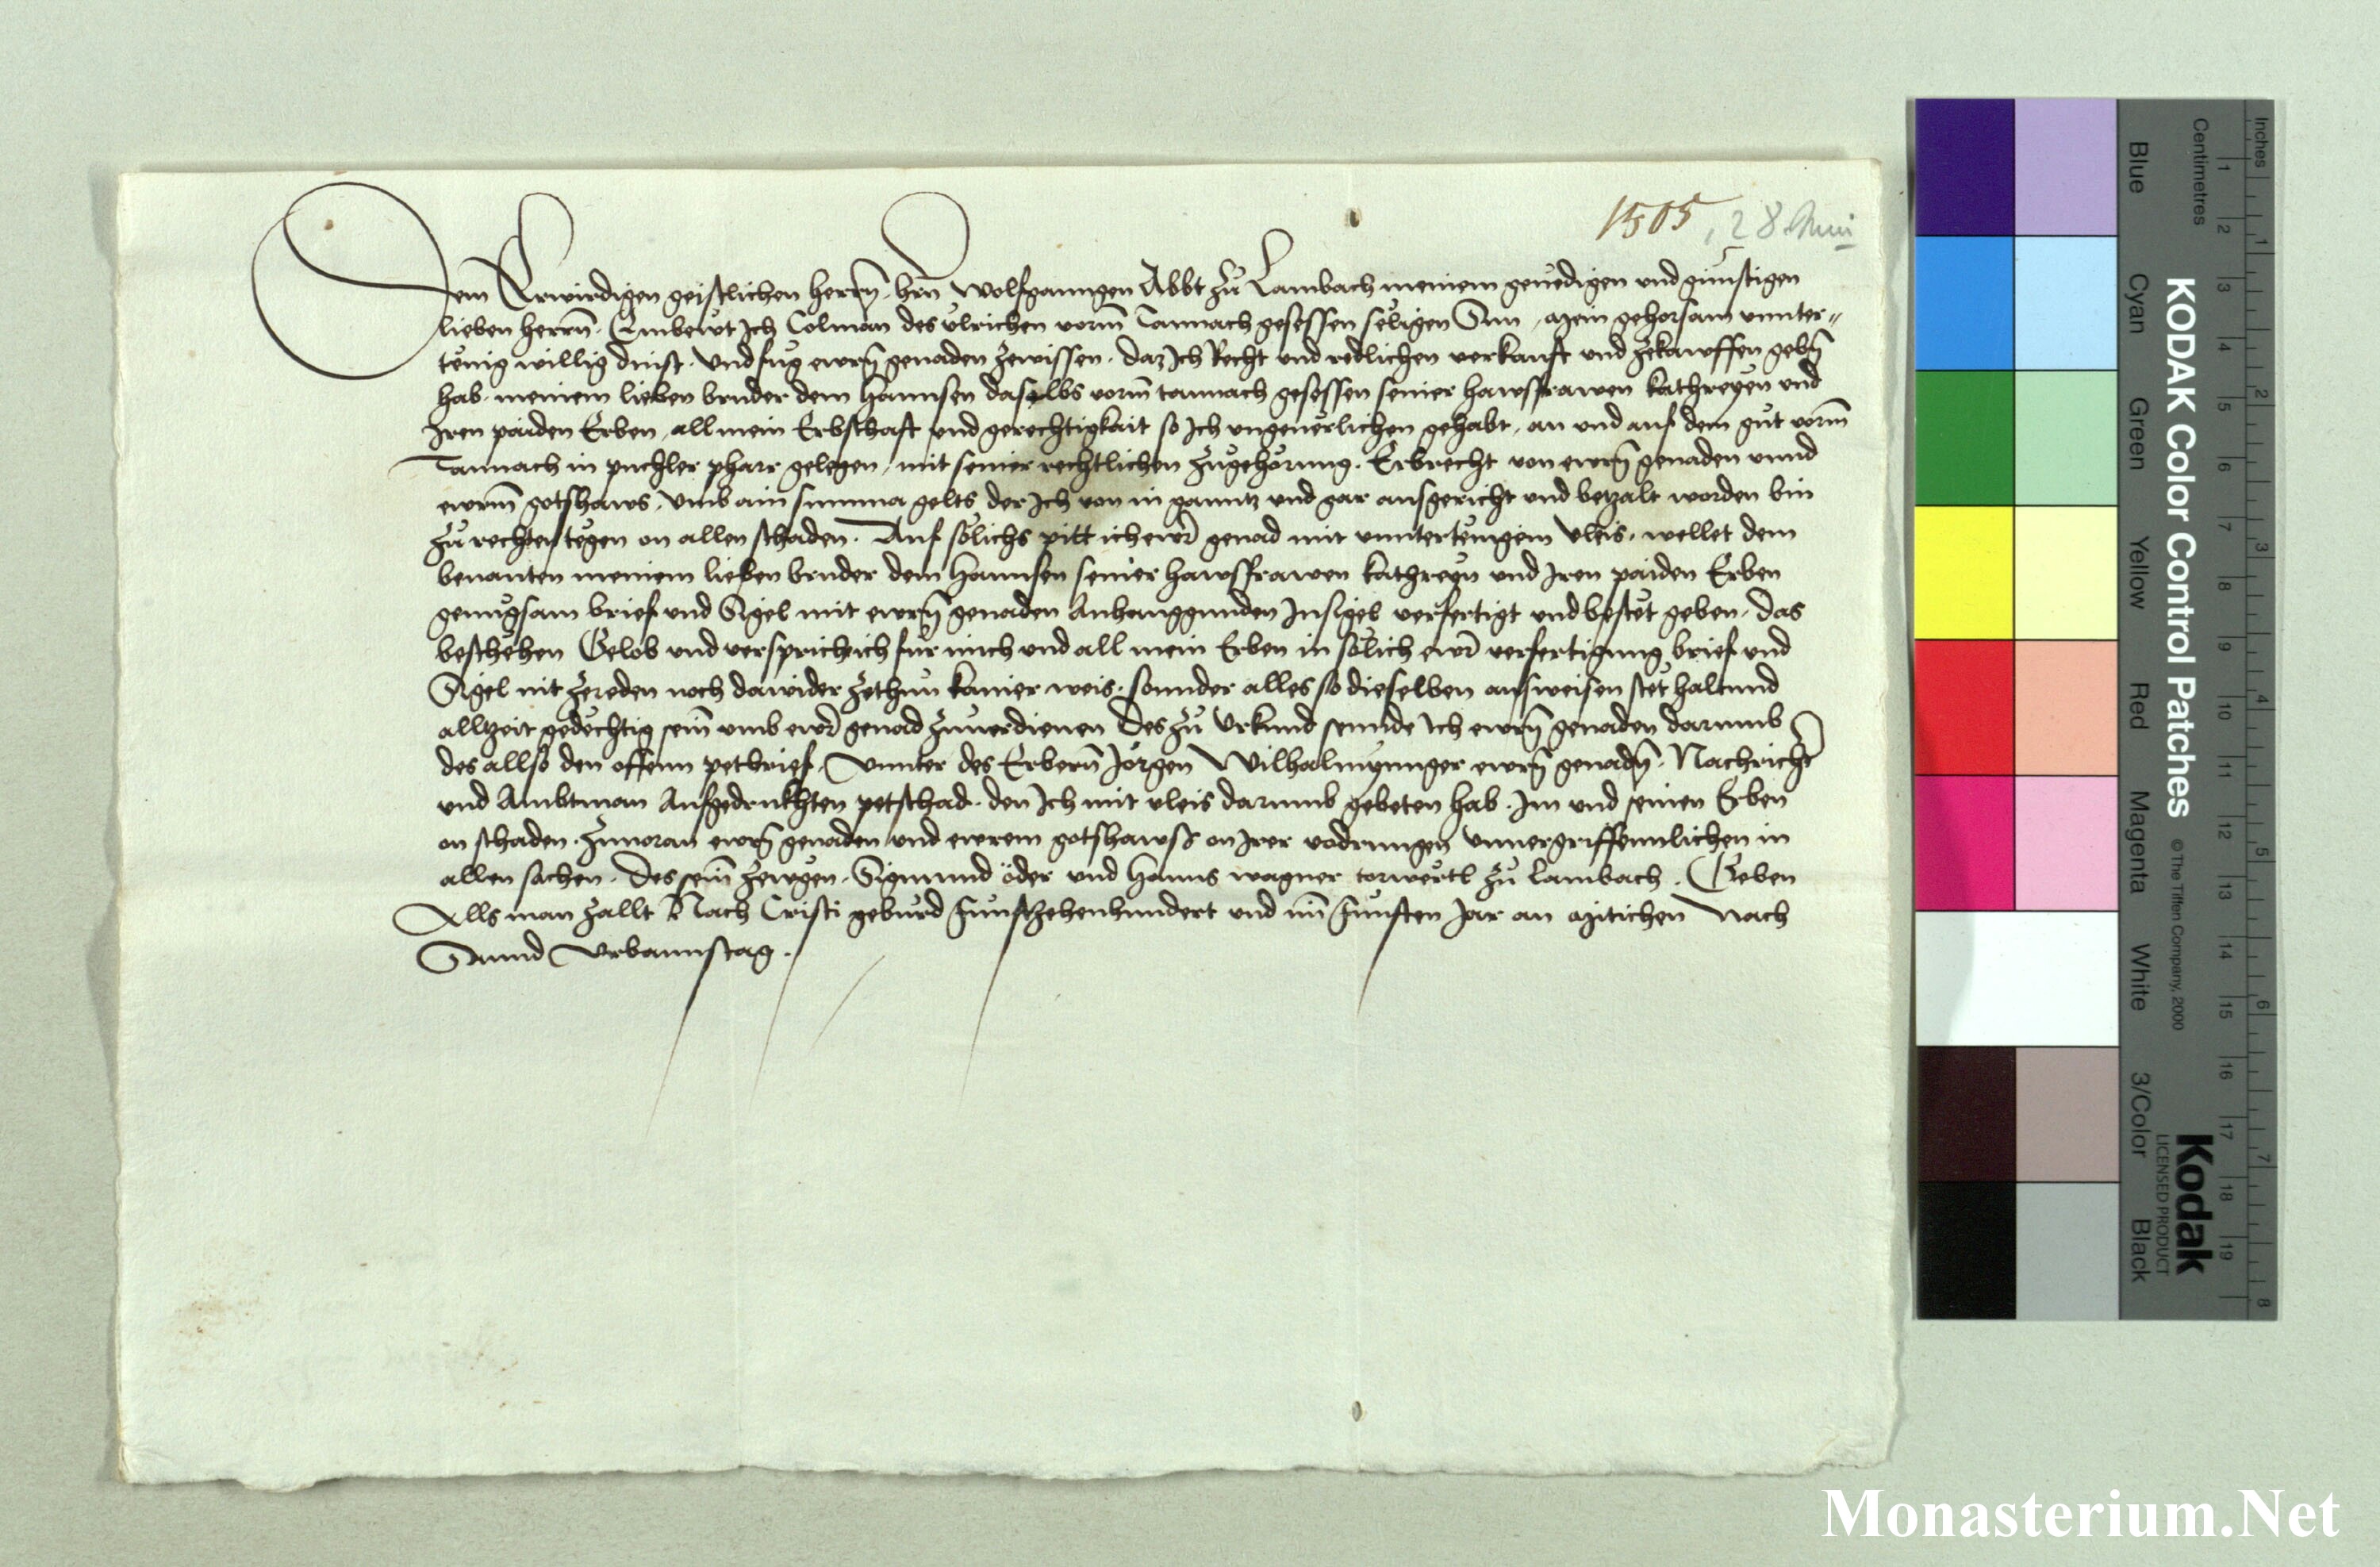 1505, 28 Mai
Dem Erwirdigen geistlichen herrn̄ hrn̄ Wolfganngen Abbt zů Lambach meinem genedigen und günstigen
lieben herrn̄. Embewt Ich Colman des ůlrichen vorm̄ Tannach gesessen seligen Sun, Mein gehorsam vnnter=
tënig willig dinst. Vnd fůg ewrn̄ genaden zewissen. daz Ich Recht und redlichen verkauft und zekawffen gebn̄
hab. meinem lieben bruder dem Hannsen daselbs vorm̄ tannach gesessen seiner hawsfrawen kathreyen und
Iren paiden Erben, all mein Erbschaft und gerechtigkait so Ich ungeuerlichen gehabt, an und auf dem gůt vorm̄
Tannach in puchler pharr gelegen, mit seiner rechtlichen zůgehörung. Erbrecht von ewrn̄ genaden vnnd
ewrm̄ gotshaws, Vmb ain summa gelts, der Ich von in ganntz und gar ausgericht und betzalt worden bin
zů rechten tëgen on allen schaden. Auf sölichs pitt ich ewr̄ genad mit vnntertenigem vleis, wellet dem
benanten meinem lieben bruder dem Hannsen seiner hawsfrawen kathreyn und Iren paiden Erben
genůgsam brief und Sigel mit ewrn̄ genaden Anhanggunden Insigel verfertigt und bestët geben. Das
beschehen Gelob und versprich ich für mich und all mein Erben in sölich ewr̄ verfertigung brief und
Sigel nit zereden noch dawider zethun kainer weis. sonnder alles so dieselben ausweisen stët haltund
alltzeit gedëchtig sein̄ umb ewr̄ genad zuuerdienen Des zů Vrkund sennde Ich ewrn̄ genaden darumb
des allso den offenn petbrief, Vnnter des Erbern̄ Jörgen Wilhalmynnger ewrn̄ genadn̄. Nachricht̄
und Ambtman Aufgedrukhten petschad. den Ich mit vleis darumb gebeten hab. Im und seinen Erben
on schaden. Zuuoran ewrn̄ genaden und ewrem gotshawss on Irer vodrungen vnuergriffennlichen in
allen sachen. Des sein̄ zewgen. Sigmund öder und Hanns wagner torwërtl zů Lambach. Geben
Alls man zallt Nach Cristi gebůrd Funftzehenhundert und im̄ Funften Jar an Mitichen Nach
Sannd Vrbannstag.
KODAK Color Control Patches © The Tiffen Company, 2000
Kodak
LICENSED PRODUCT
Inches
Centimetres
Blue
Cyan
Green
Yellow
Red
Magenta
White
3/Color
Black
1 2 3 4 5 6 7 8 9 10 11 12 13 14 15 16 17 18 19
1 2 3 4 5 6 7 8
Monasterium.Net